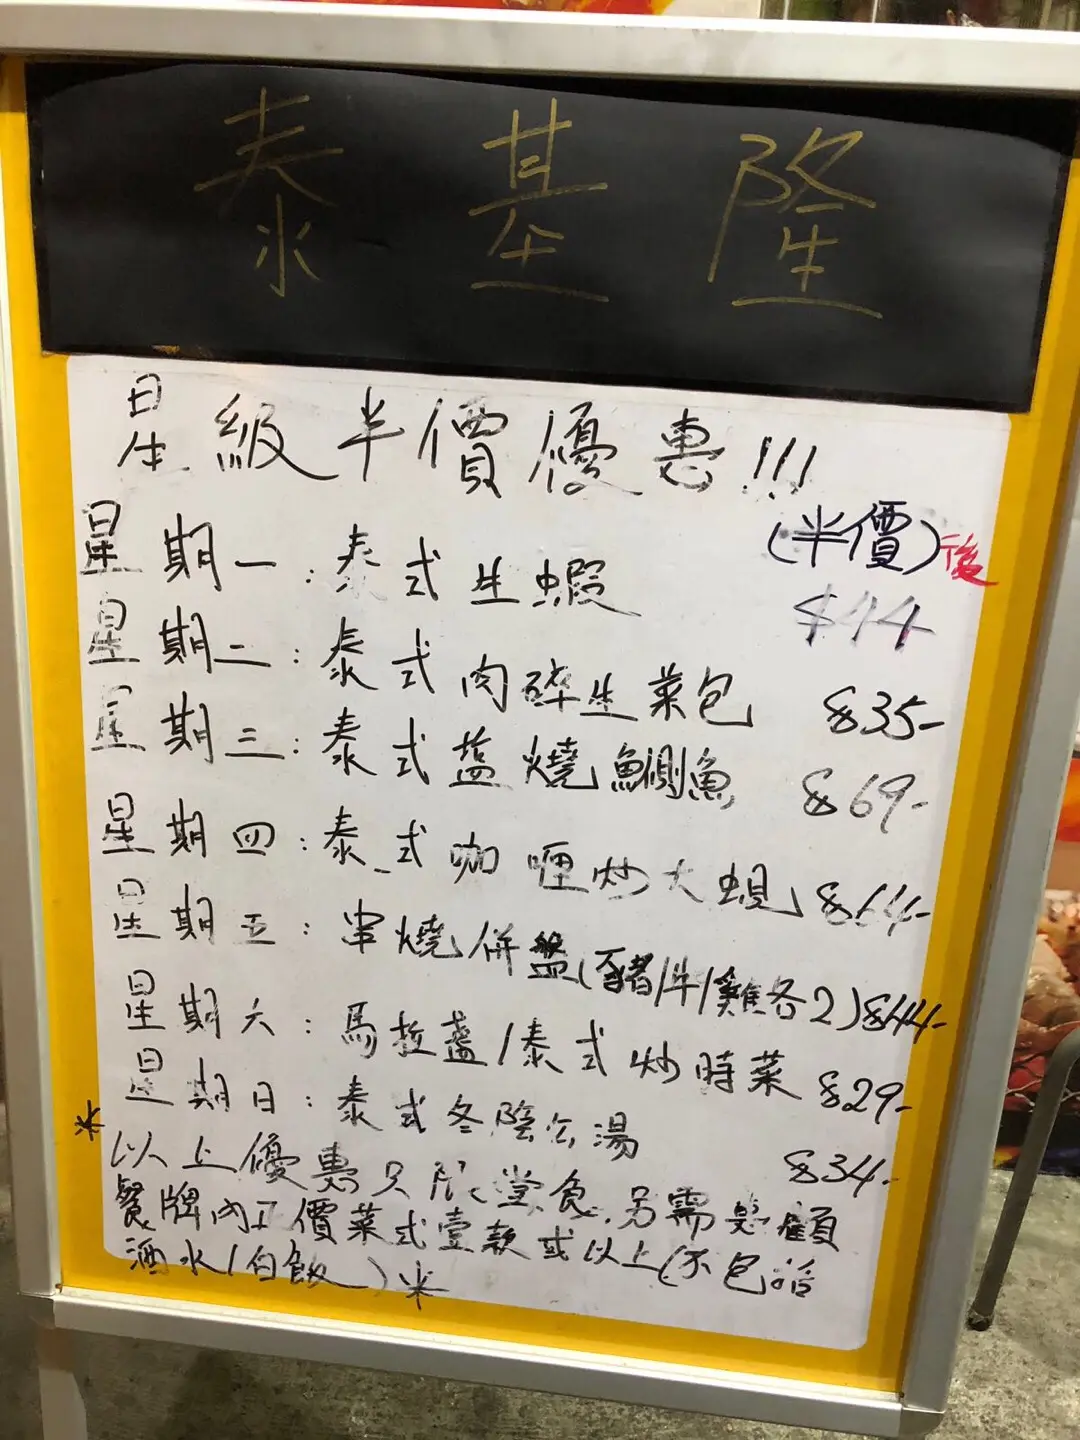 泰基隆
星級半價優惠!!!
(半價)後
星期一:泰式生蝦 $44
星期二:泰式肉碎生菜包 $35-
星期三:泰式盐燒鯽魚 $69-
星期四:泰式咖喱炒大蜆 $64-
星期五:串燒併盤(豬/牛/雞各2) $44-
星期六:馬拉盞/泰式炒時菜 $29-
星期日:泰式冬陰公湯 $34-
*以上優惠只限堂食,另需惠顧
餐牌內正價菜式壹款或以上(不包括
酒水/白飯)*